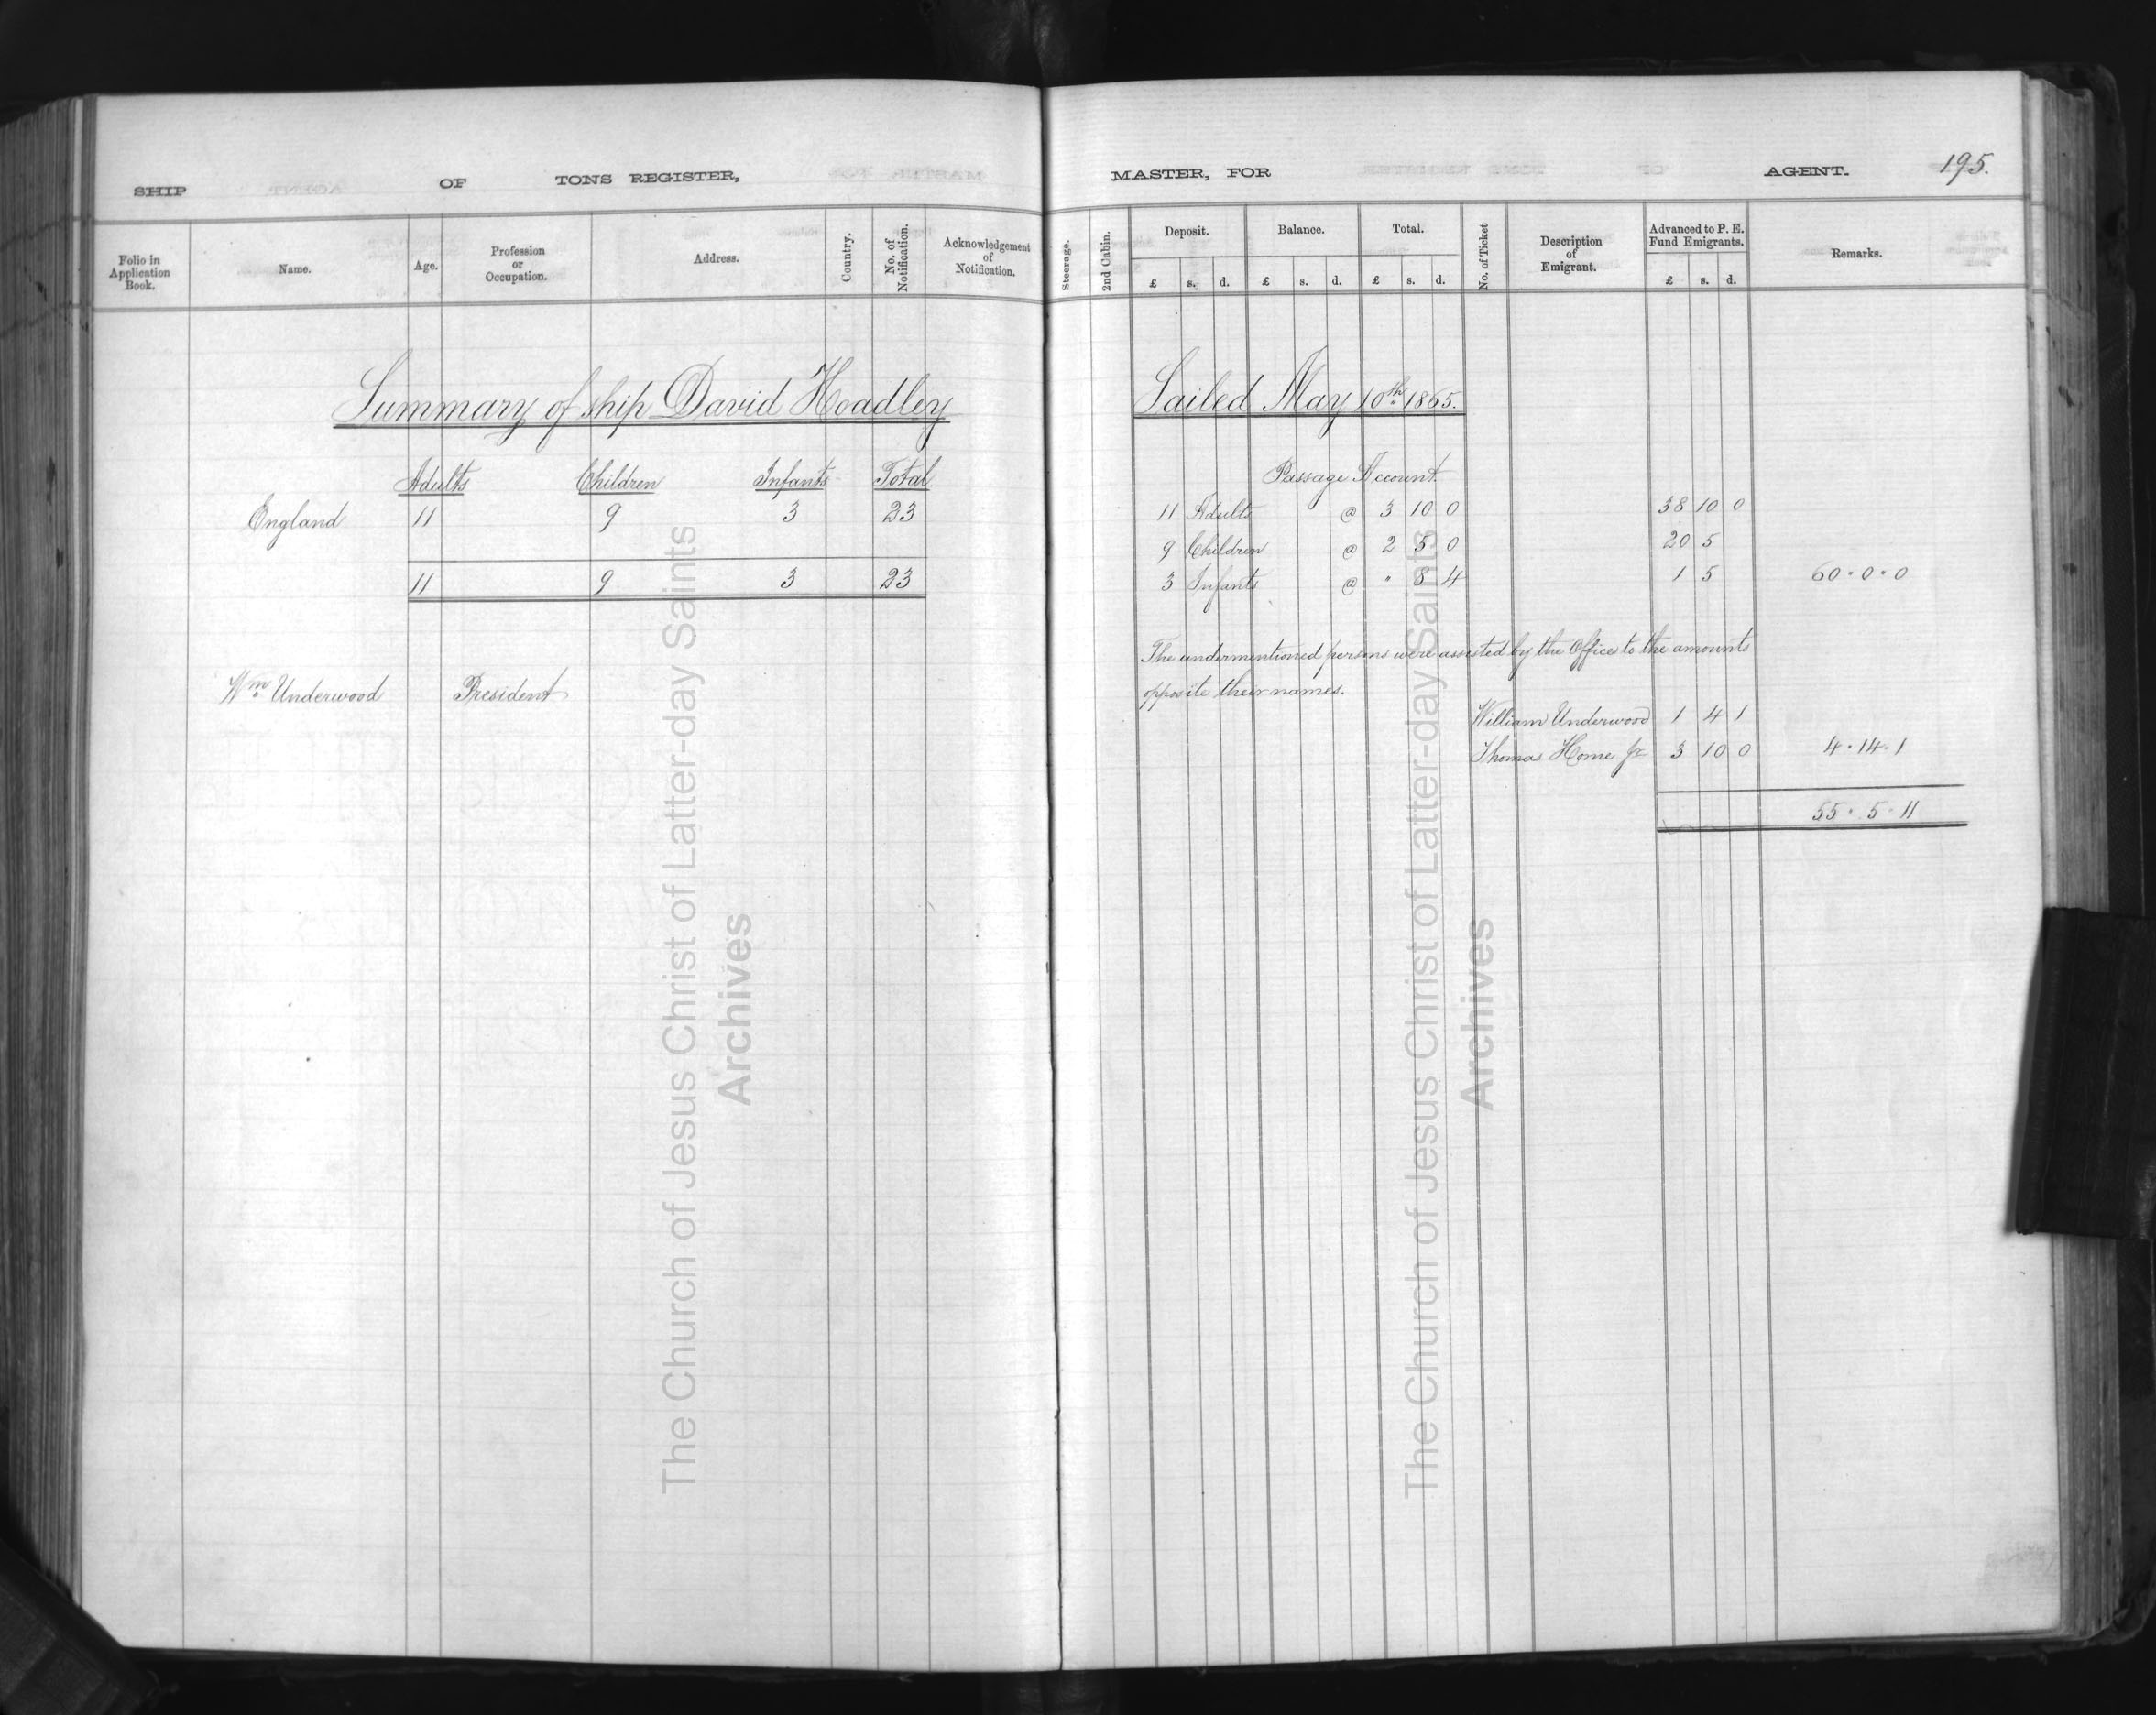 SHIP OF TONS REGISTER, MASTER, FOR AGENT. 195.
Folio in Application Book. Name. Age. Profession or Occupation. Address. Country. No. of Notification. Acknowledgement of Notification. Steerage. 2nd Cabin. Deposit. £ s. d. Balance. £ s. d. Total. £ s. d. No. of Ticket Description of Emigrant. Advanced to P. E. Fund Emigrants. £ s. d. Remarks.
Summary of ship David Hoadley
Adults Children Infants Total.
England 11 9 3 23
11 9 3 23
Wm Underwood President
Sailed May 10th 1865.
Passage Account.
11 Adults @ 3 10 0 38 10 0
9 Children @ 2 5 0 20 5
3 Infants @ " 8 4 1 5 60 · 0 · 0
The undermentioned persons were assisted by the Office to the amounts
opposite their names.
William Underwood 1 4 1
Thomas Horne Jr 3 10 0 4 · 14 · 1
55 · 5 · 11
The Church of Jesus Christ of Latter-day Saints
Archives
The Church of Jesus Christ of Latter-day Saints
Archives